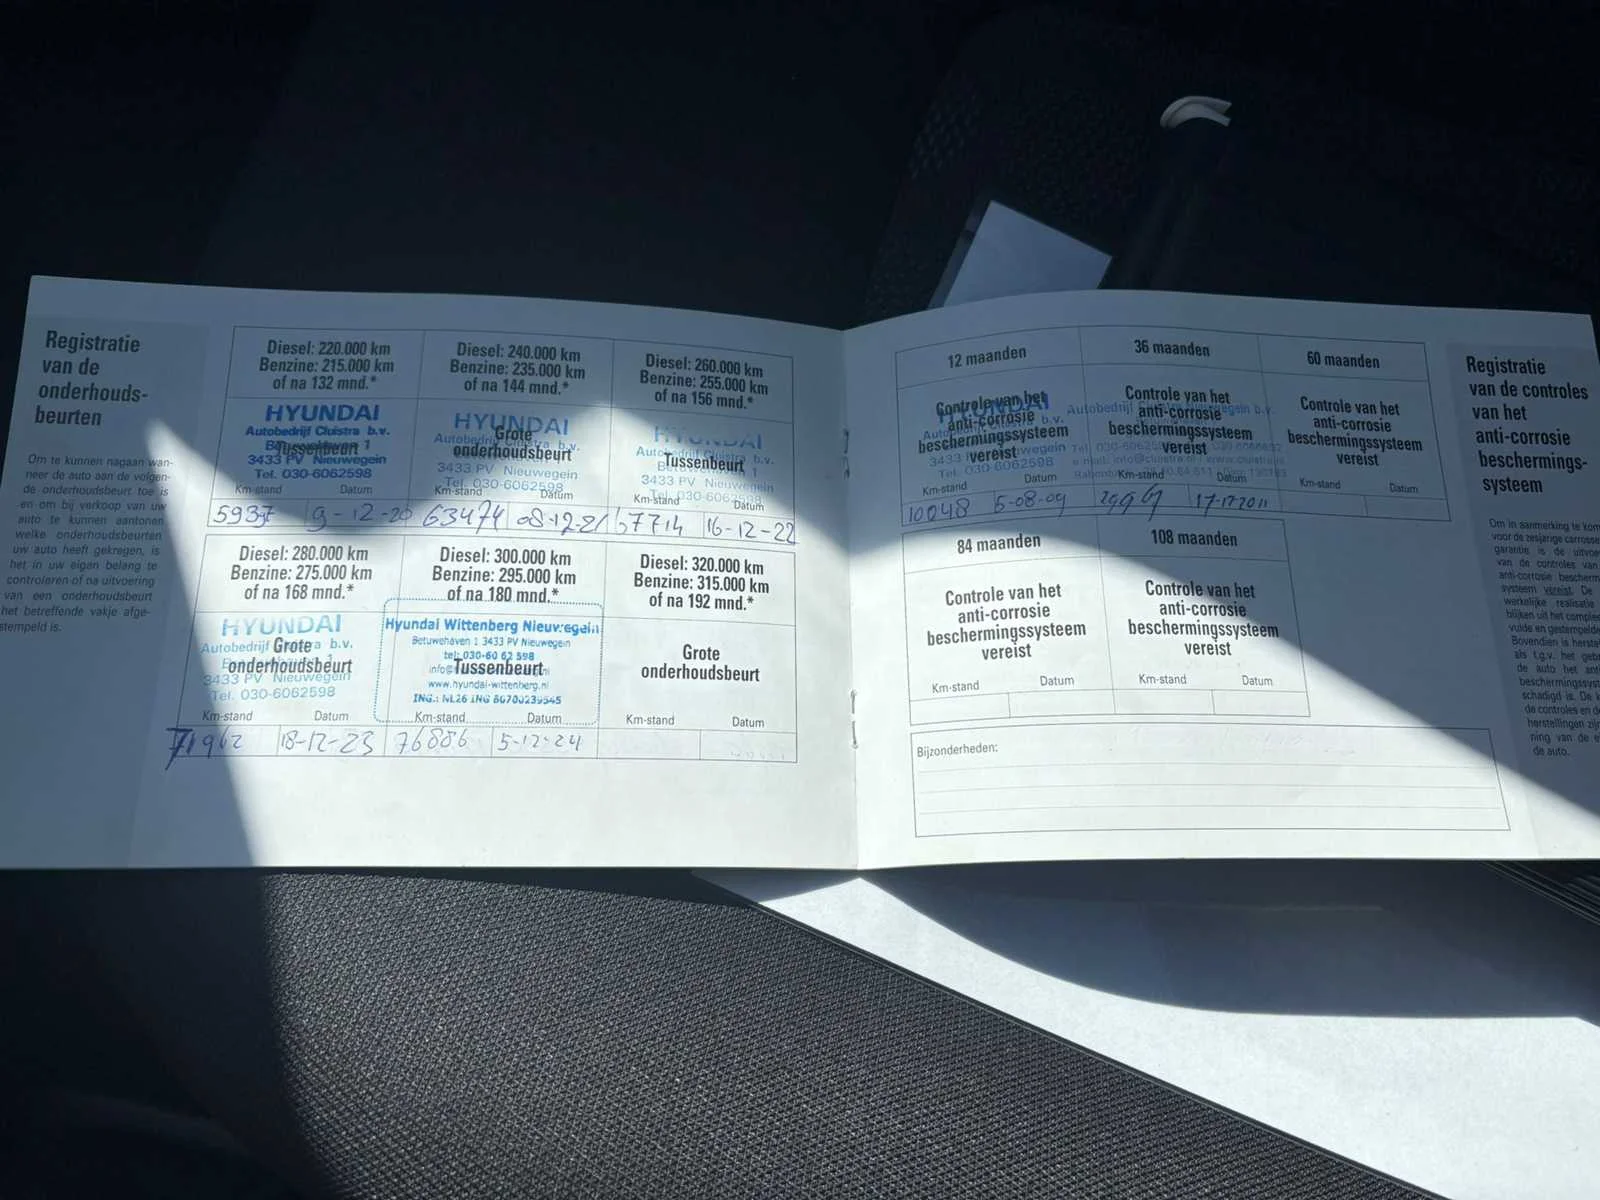 Registratie
van de
onderhouds-
beurten
Om te kunnen nagaan wan-
neer de auto aan de volgen-
de onderhoudsbeurt toe is
en om bij verkoop van uw
auto te kunnen aantonen
welke onderhoudsbeurten
uw auto heeft gekregen, is
het in uw eigen belang te
controleren of na uitvoering
van een onderhoudsbeurt
het betreffende vakje afge-
stempeld is.
Diesel: 220.000 km
Benzine: 215.000 km
of na 132 mnd.*
HYUNDAI
Autobedrijf Cluistra b.v.
Tussenbeurt
3433 PV Nieuwegein
Tel. 030-6062598
Km-stand Datum
9-12-20
Diesel: 240.000 km
Benzine: 235.000 km
of na 144 mnd.*
HYUNDAI
Grote
Autobedrijf Cluistra b.v.
onderhoudsbeurt
3433 PV Nieuwegein
Tel. 030-6062598
Km-stand Datum
63474 08-12-21
Diesel: 260.000 km
Benzine: 255.000 km
of na 156 mnd.*
HYUNDAI
Autobedrijf Cluistra b.v.
Tussenbeurt
3433 PV Nieuwegein
Tel. 030-6062598
Km-stand Datum
67714 16-12-22
Diesel: 280.000 km
Benzine: 275.000 km
of na 168 mnd.*
HYUNDAI
Autobedrijf Cluistra b.v.
Grote
onderhoudsbeurt
3433 PV Nieuwegein
Tel. 030-6062598
Km-stand Datum
71962 18-12-23
Diesel: 300.000 km
Benzine: 295.000 km
of na 180 mnd.*
Hyundai Wittenberg Nieuwegein
Betuwehaven 1 3433 PV Nieuwegein
tel: 030-60 62 598
Tussenbeurt
www.hyundai-wittenberg.nl
Km-stand Datum
76886 5-12-24
Diesel: 320.000 km
Benzine: 315.000 km
of na 192 mnd.*
Grote
onderhoudsbeurt
Km-stand Datum
12 maanden
HYUNDAI
Controle van het
anti-corrosie
beschermingssysteem
vereist
Tel. 030-6062598
Km-stand Datum
10048 5-08-09
36 maanden
Autobedrijf Cluistra Nieuwegein b.v.
Controle van het
anti-corrosie
beschermingssysteem
vereist
Km-stand Datum
17-12-2011
60 maanden
Controle van het
anti-corrosie
beschermingssysteem
vereist
Km-stand Datum
84 maanden
Controle van het
anti-corrosie
beschermingssysteem
vereist
Km-stand Datum
108 maanden
Controle van het
anti-corrosie
beschermingssysteem
vereist
Km-stand Datum
Bijzonderheden:
Registratie
van de controles
van het
anti-corrosie
beschermings-
systeem
Om in aanmerking te kom
voor de zesjarige carrosse
garantie is de uitvoe
van de controles van
anti-corrosie bescherm
systeem vereist. De
werkelijke realisatie
blijken uit het comple
vulde en gestempelde
Bovendien is herstel
als t.g.v. het geb
de auto het ant
beschermingssyst
schadigd is. De k
de controles en de
herstellingen zijn
ning van de e
de auto.